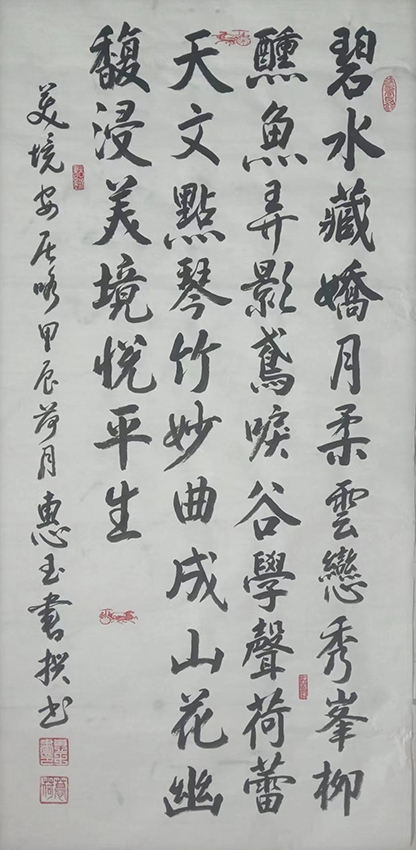 碧水藏嬌月柔雲戀秀峯柳
醺魚弄影鳶唳谷學聲荷蕾
天文點琴竹妙曲成山花幽
馥浸美境悅平生
美境安居咯甲辰荷月惠玉書撰书